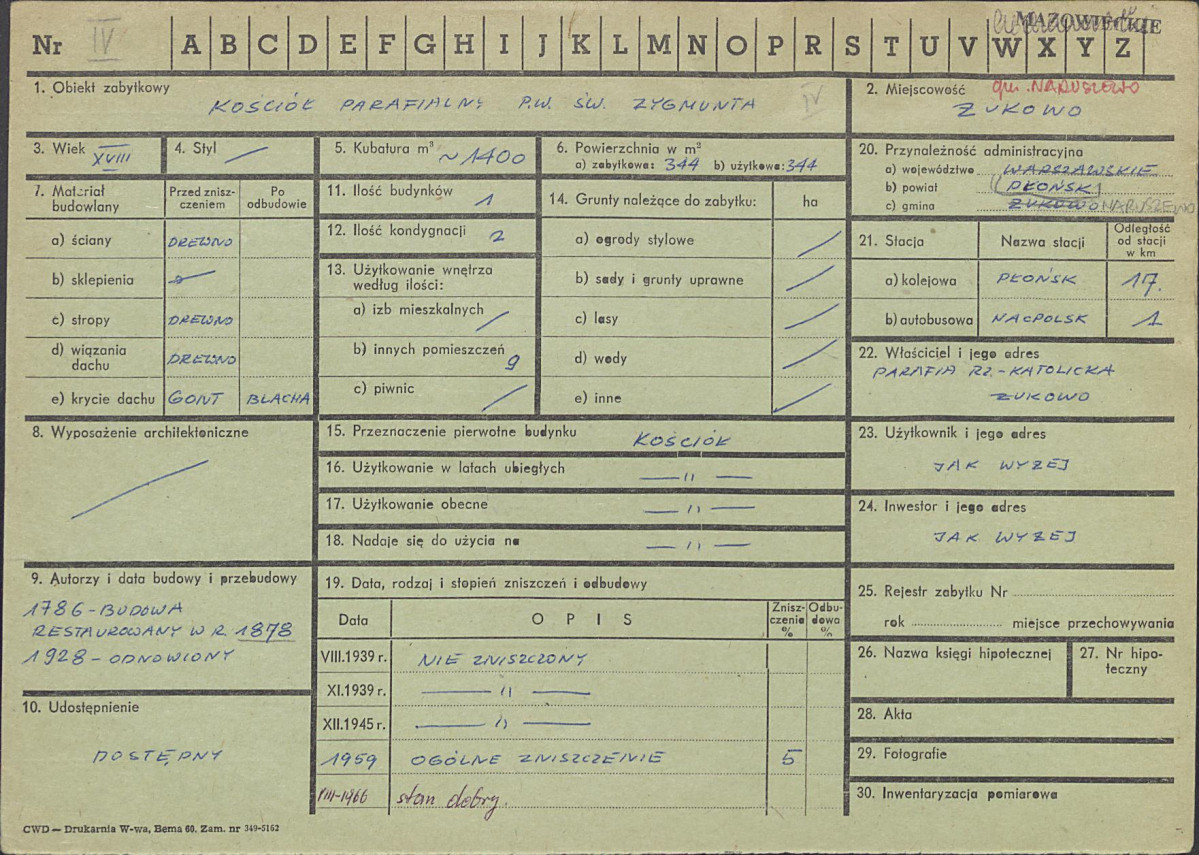 Nr IV A B C D E F G H I J K L M N O P R S T U V W X Y Z
MAZOWIECKIE
1. Obiekt zabytkowy
KOŚCIÓŁ PARAFIALNY P.W. ŚW. ZYGMUNTA IV
2. Miejscowość gm. NARUSZEWO
ŻUKOWO
3. Wiek XVIII
4. Styl
5. Kubatura m³ ~1400
6. Powierzchnia w m²
a) zabytkowa: 344 b) użytkowa: 344
7. Materiał budowlany
Przed zniszczeniem
Po odbudowie
a) ściany DREWNO
b) sklepienia
c) stropy DREWNO
d) wiązania dachu DREWNO
e) krycie dachu GONT BLACHA
8. Wyposażenie architektoniczne
9. Autorzy i data budowy i przebudowy
1786 - BUDOWA
RESTAUROWANY W R. 1878
1928 - ODNOWIONY
10. Udostępnienie
DOSTĘPNY
11. Ilość budynków 1
12. Ilość kondygnacji 2
13. Użytkowanie wnętrza
według ilości:
a) izb mieszkalnych
b) innych pomieszczeń 9
c) piwnic
14. Grunty należące do zabytku: ha
a) ogrody stylowe
b) sady i grunty uprawne
c) lasy
d) wody
e) inne
15. Przeznaczenie pierwotne budynku KOŚCIÓŁ
16. Użytkowanie w latach ubiegłych — " —
17. Użytkowanie obecne — " —
18. Nadaje się do użycia na — " —
19. Data, rodzaj i stopień zniszczeń i odbudowy
Data OPIS Zniszczenie % Odbudowa %
VIII.1939 r. NIE ZNISZCZONY
XI.1939 r. — " —
XII.1945 r. — " —
1959 OGÓLNE ZNISZCZENIE 5
VIII-1966 stan dobry.
20. Przynależność administracyjna
a) województwo WARSZAWSKIE
b) powiat PŁOŃSK
c) gmina ŻUKOWO NARUSZEWO
21. Stacja Nazwa stacji Odległość od stacji w km
a) kolejowa PŁOŃSK 17.
b) autobusowa NACPOLSK 1
22. Właściciel i jego adres
PARAFIA RZ.-KATOLICKA
ŻUKOWO
23. Użytkownik i jego adres
JAK WYŻEJ
24. Inwestor i jego adres
JAK WYŻEJ
25. Rejestr zabytku Nr
rok miejsce przechowywania
26. Nazwa księgi hipotecznej
27. Nr hipoteczny
28. Akta
29. Fotografie
30. Inwentaryzacja pomiarowa
CWD — Drukarnia W-wa, Bema 60, Zam. nr 349-5162